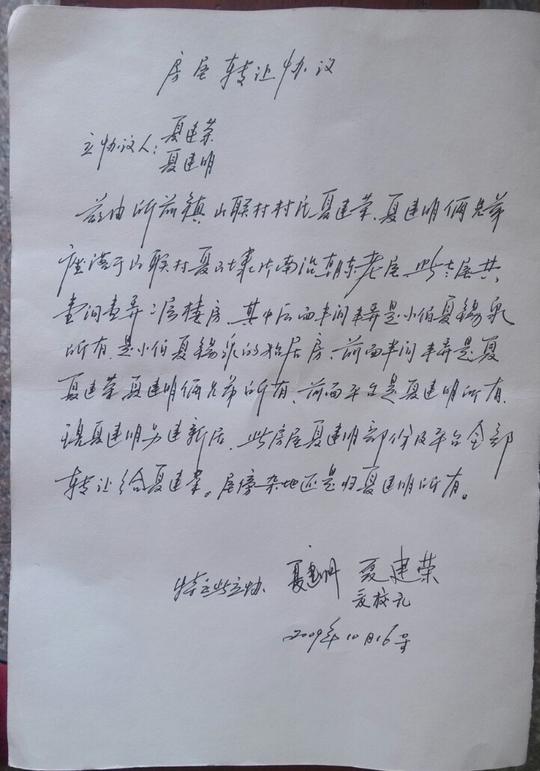 房屋转让协议
立协议人：夏建荣
夏建明
兹由所前镇山联村村民夏建荣、夏建明俩兄弟
座落于山联村夏山埭片南沿朝东老屋 此老屋共
壹间壹弄二层楼房 其中后面半间半弄是小伯夏锡泉
所有，是小伯夏锡泉的独居房，前面半间半弄是夏
夏建荣夏建明俩兄弟所有，前面平台是夏建明所有，
现夏建明另建新居，此房屋夏建明部份及平台全部
转让给夏建荣。屋旁杂地还是归夏建明所有。
特立此立协 夏建明 夏建荣
夏校礼
2009年10月16号